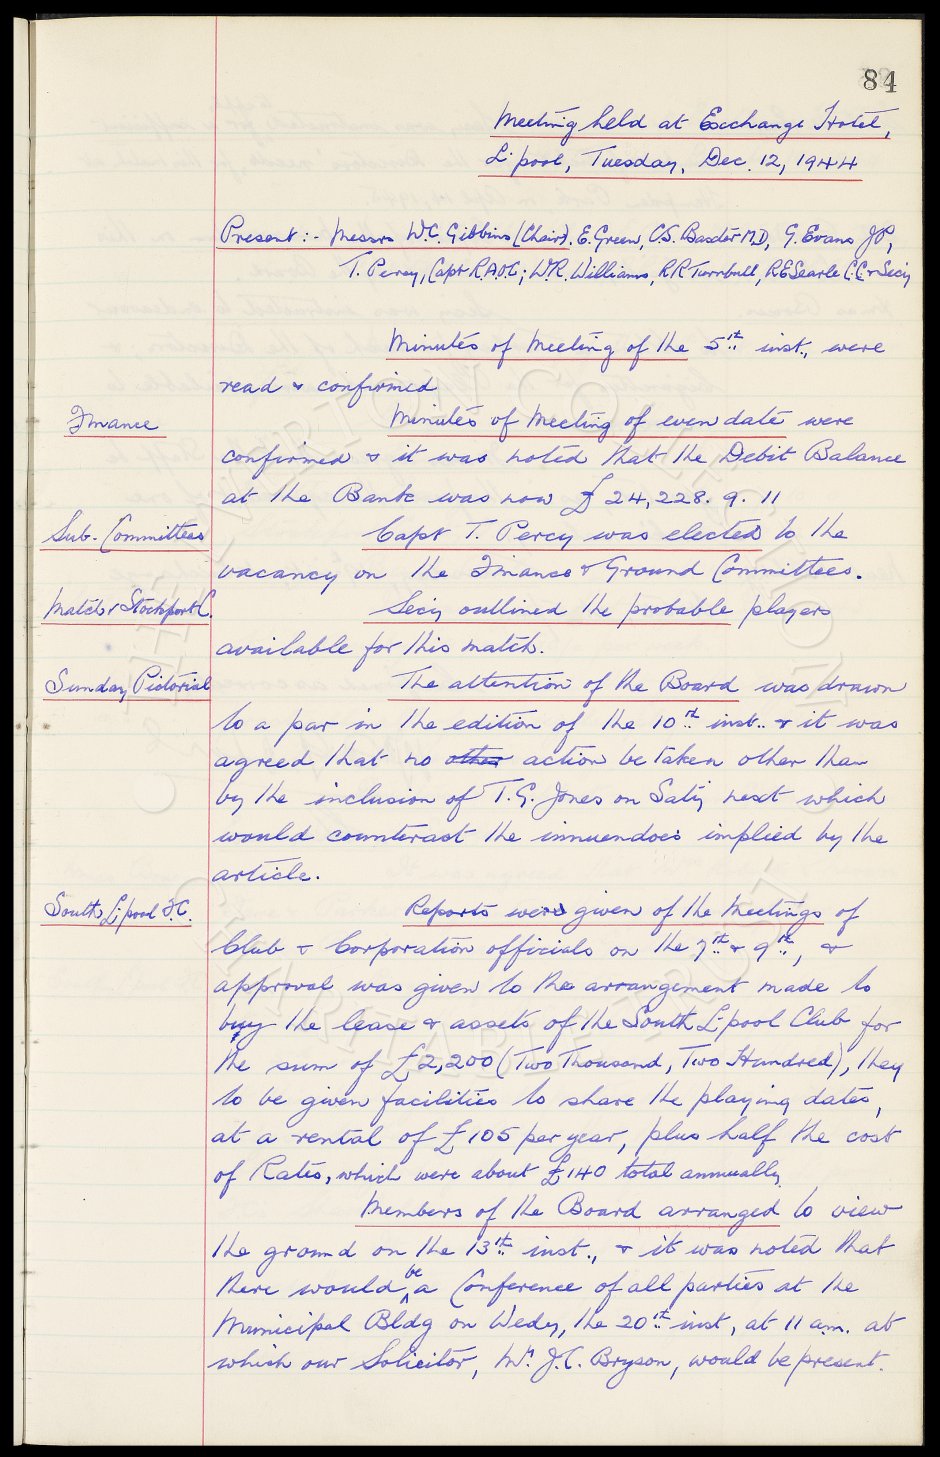 84
Meeting held at Exchange Hotel,
L'pool, Tuesday, Dec. 12, 1944
Present :- Messrs W.C. Gibbins (Chair). E. Green, C.S. Baxter M.D, G. Evans J.P,
T. Percy, Capt R.A.O.C; W.R. Williams, R.R. Turnbull, R.E. Searle C.C. & Secy
Minutes of Meeting of the 5th inst., were
read & confirmed
Finance
Minutes of Meeting of even date were
confirmed & it was noted that the Debit Balance
at the Bank was now £24,228. 9. 11
Sub-Committees
Capt T. Percy was elected to the
vacancy on the Finance & Ground Committees.
Match v Stockport C.
Secy outlined the probable players
available for this match.
Sunday Pictorial
The attention of the Board was drawn
to a par in the edition of the 10th inst.. & it was
agreed that no other action be taken other than
by the inclusion of T.G. Jones on Satdy next which
would counteract the innuendoes implied by the
article.
South L'pool F.C.
Reports were given of the Meetings of
Club & Corporation officials on the 7th & 9th, &
approval was given to the arrangement made to
buy the lease & assets of the South L'pool Club for
the sum of £2,200 (Two Thousand, Two Hundred), they
to be given facilities to share the playing dates,
at a rental of £105 per year, plus half the cost
of Rates, which were about £140 total annually.
Members of the Board arranged to view
the ground on the 13th inst., & it was noted that
there would be a Conference of all parties at the
Municipal Bldg on Wedy, the 20th inst, at 11 a.m. at
which our Solicitor, Mr. J.C. Bryson, would be present.